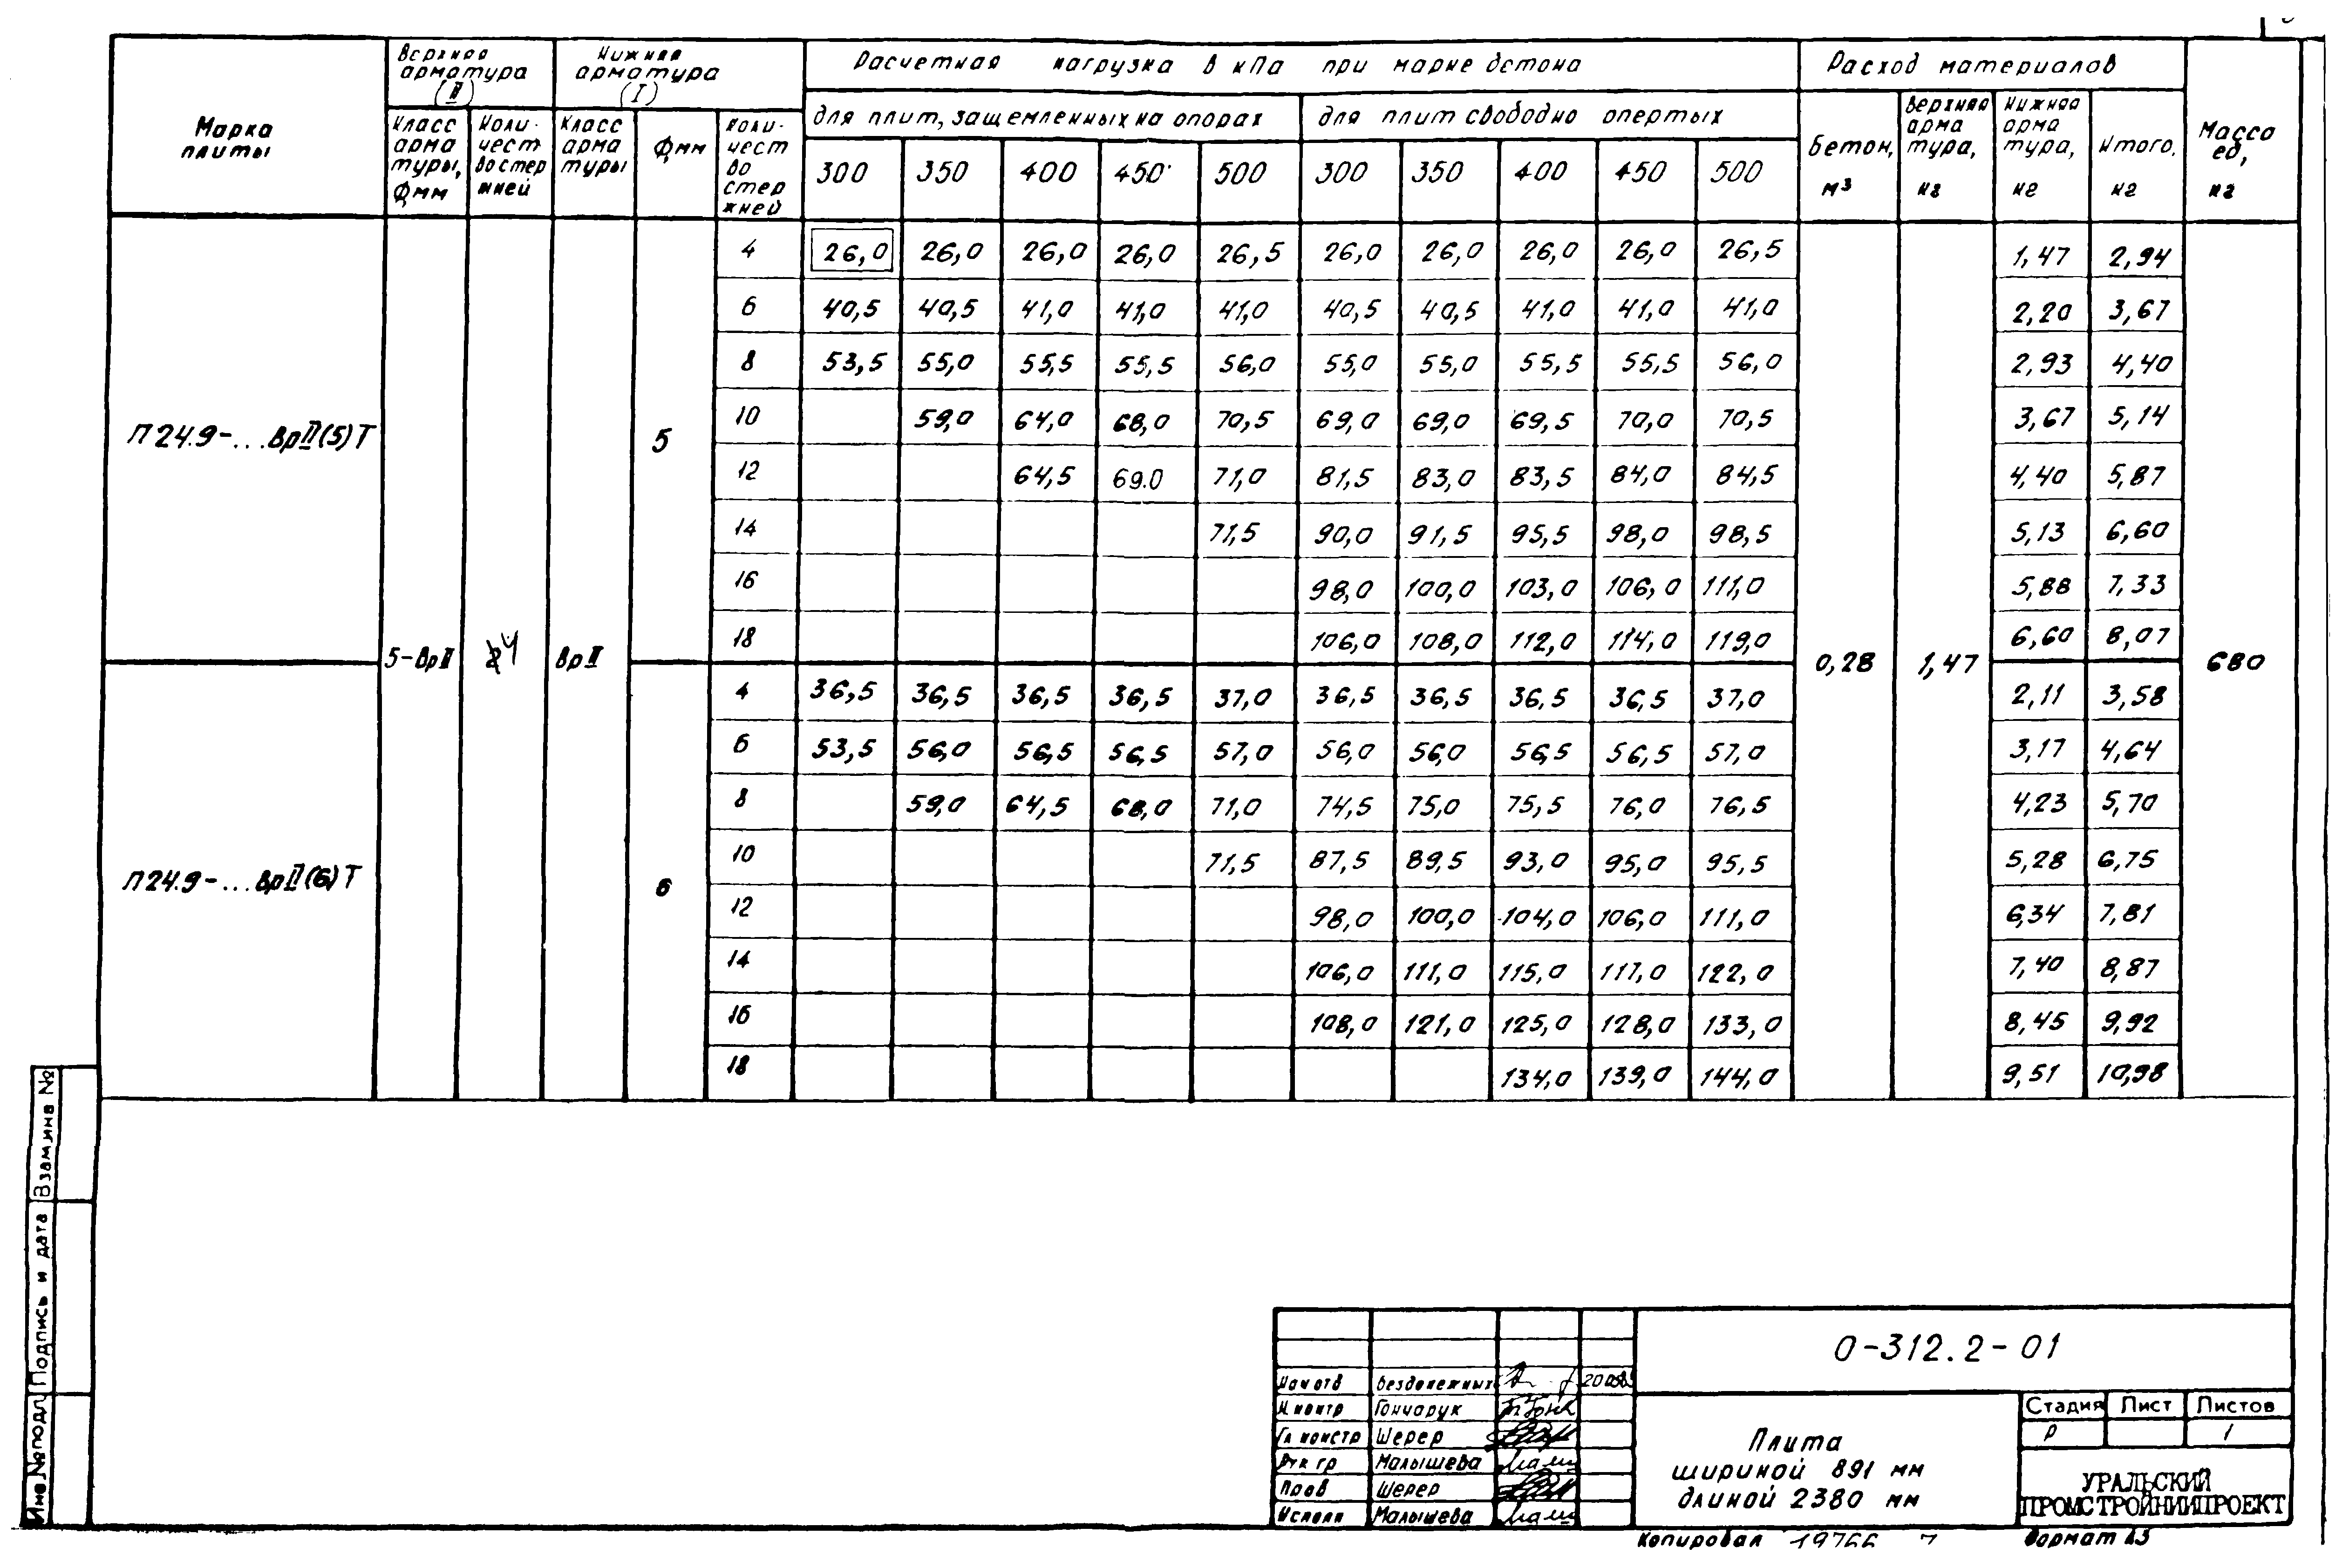 Марка плиты
Верхняя арматура (II)
Нижняя арматура (I)
Расчетная нагрузка в кПа при марке бетона
Расход материалов
Масса ед, кг
Класс арматуры, Фмм
Количество стержней
Класс арматуры
Фмм
Количество стержней
для плит, защемленных на опорах
для плит свободно опертых
Бетон, м³
Верхняя арматура, кг
Нижняя арматура, кг
Итого, кг
300 350 400 450 500 300 350 400 450 500
П24.9-...ВрII(5)Т
5-ВрII
4
ВрII
5
0,28
1,47
680
4 26,0 26,0 26,0 26,0 26,5 26,0 26,0 26,0 26,0 26,5 1,47 2,94
6 40,5 40,5 41,0 41,0 41,0 40,5 40,5 41,0 41,0 41,0 2,20 3,67
8 53,5 55,0 55,5 55,5 56,0 55,0 55,0 55,5 55,5 56,0 2,93 4,40
10 59,0 64,0 68,0 70,5 69,0 69,0 69,5 70,0 70,5 3,67 5,14
12 64,5 69.0 71,0 81,5 83,0 83,5 84,0 84,5 4,40 5,87
14 71,5 90,0 91,5 95,5 98,0 98,5 5,13 6,60
16 98,0 100,0 103,0 106,0 111,0 5,88 7,33
18 106,0 108,0 112,0 114,0 119,0 6,60 8,07
П24.9-...ВрII(6)Т
6
4 36,5 36,5 36,5 36,5 37,0 36,5 36,5 36,5 36,5 37,0 2,11 3,58
6 53,5 56,0 56,5 56,5 57,0 56,0 56,0 56,5 56,5 57,0 3,17 4,64
8 59,0 64,5 68,0 71,0 74,5 75,0 75,5 76,0 76,5 4,23 5,70
10 71,5 87,5 89,5 93,0 95,0 95,5 5,28 6,75
12 98,0 100,0 104,0 106,0 111,0 6,34 7,81
14 106,0 111,0 115,0 117,0 122,0 7,40 8,87
16 108,0 121,0 125,0 128,0 133,0 8,45 9,92
18 134,0 139,0 144,0 9,51 10,98
Взам.инв №
Подпись и дата
Инв № подл
0-312.2-01
Нач отв Безденежных
Н контр Гончарук
Гл констр Шерер
Рук гр Малышева
Пров Шерер
Исполн Малышева
Плита
шириной 891 мм
длиной 2380 мм
Стадия Лист Листов
Р 1
УРАЛЬСКИЙ
ПРОМСТРОЙНИИПРОЕКТ
Копировал 19766 7 Формат А3